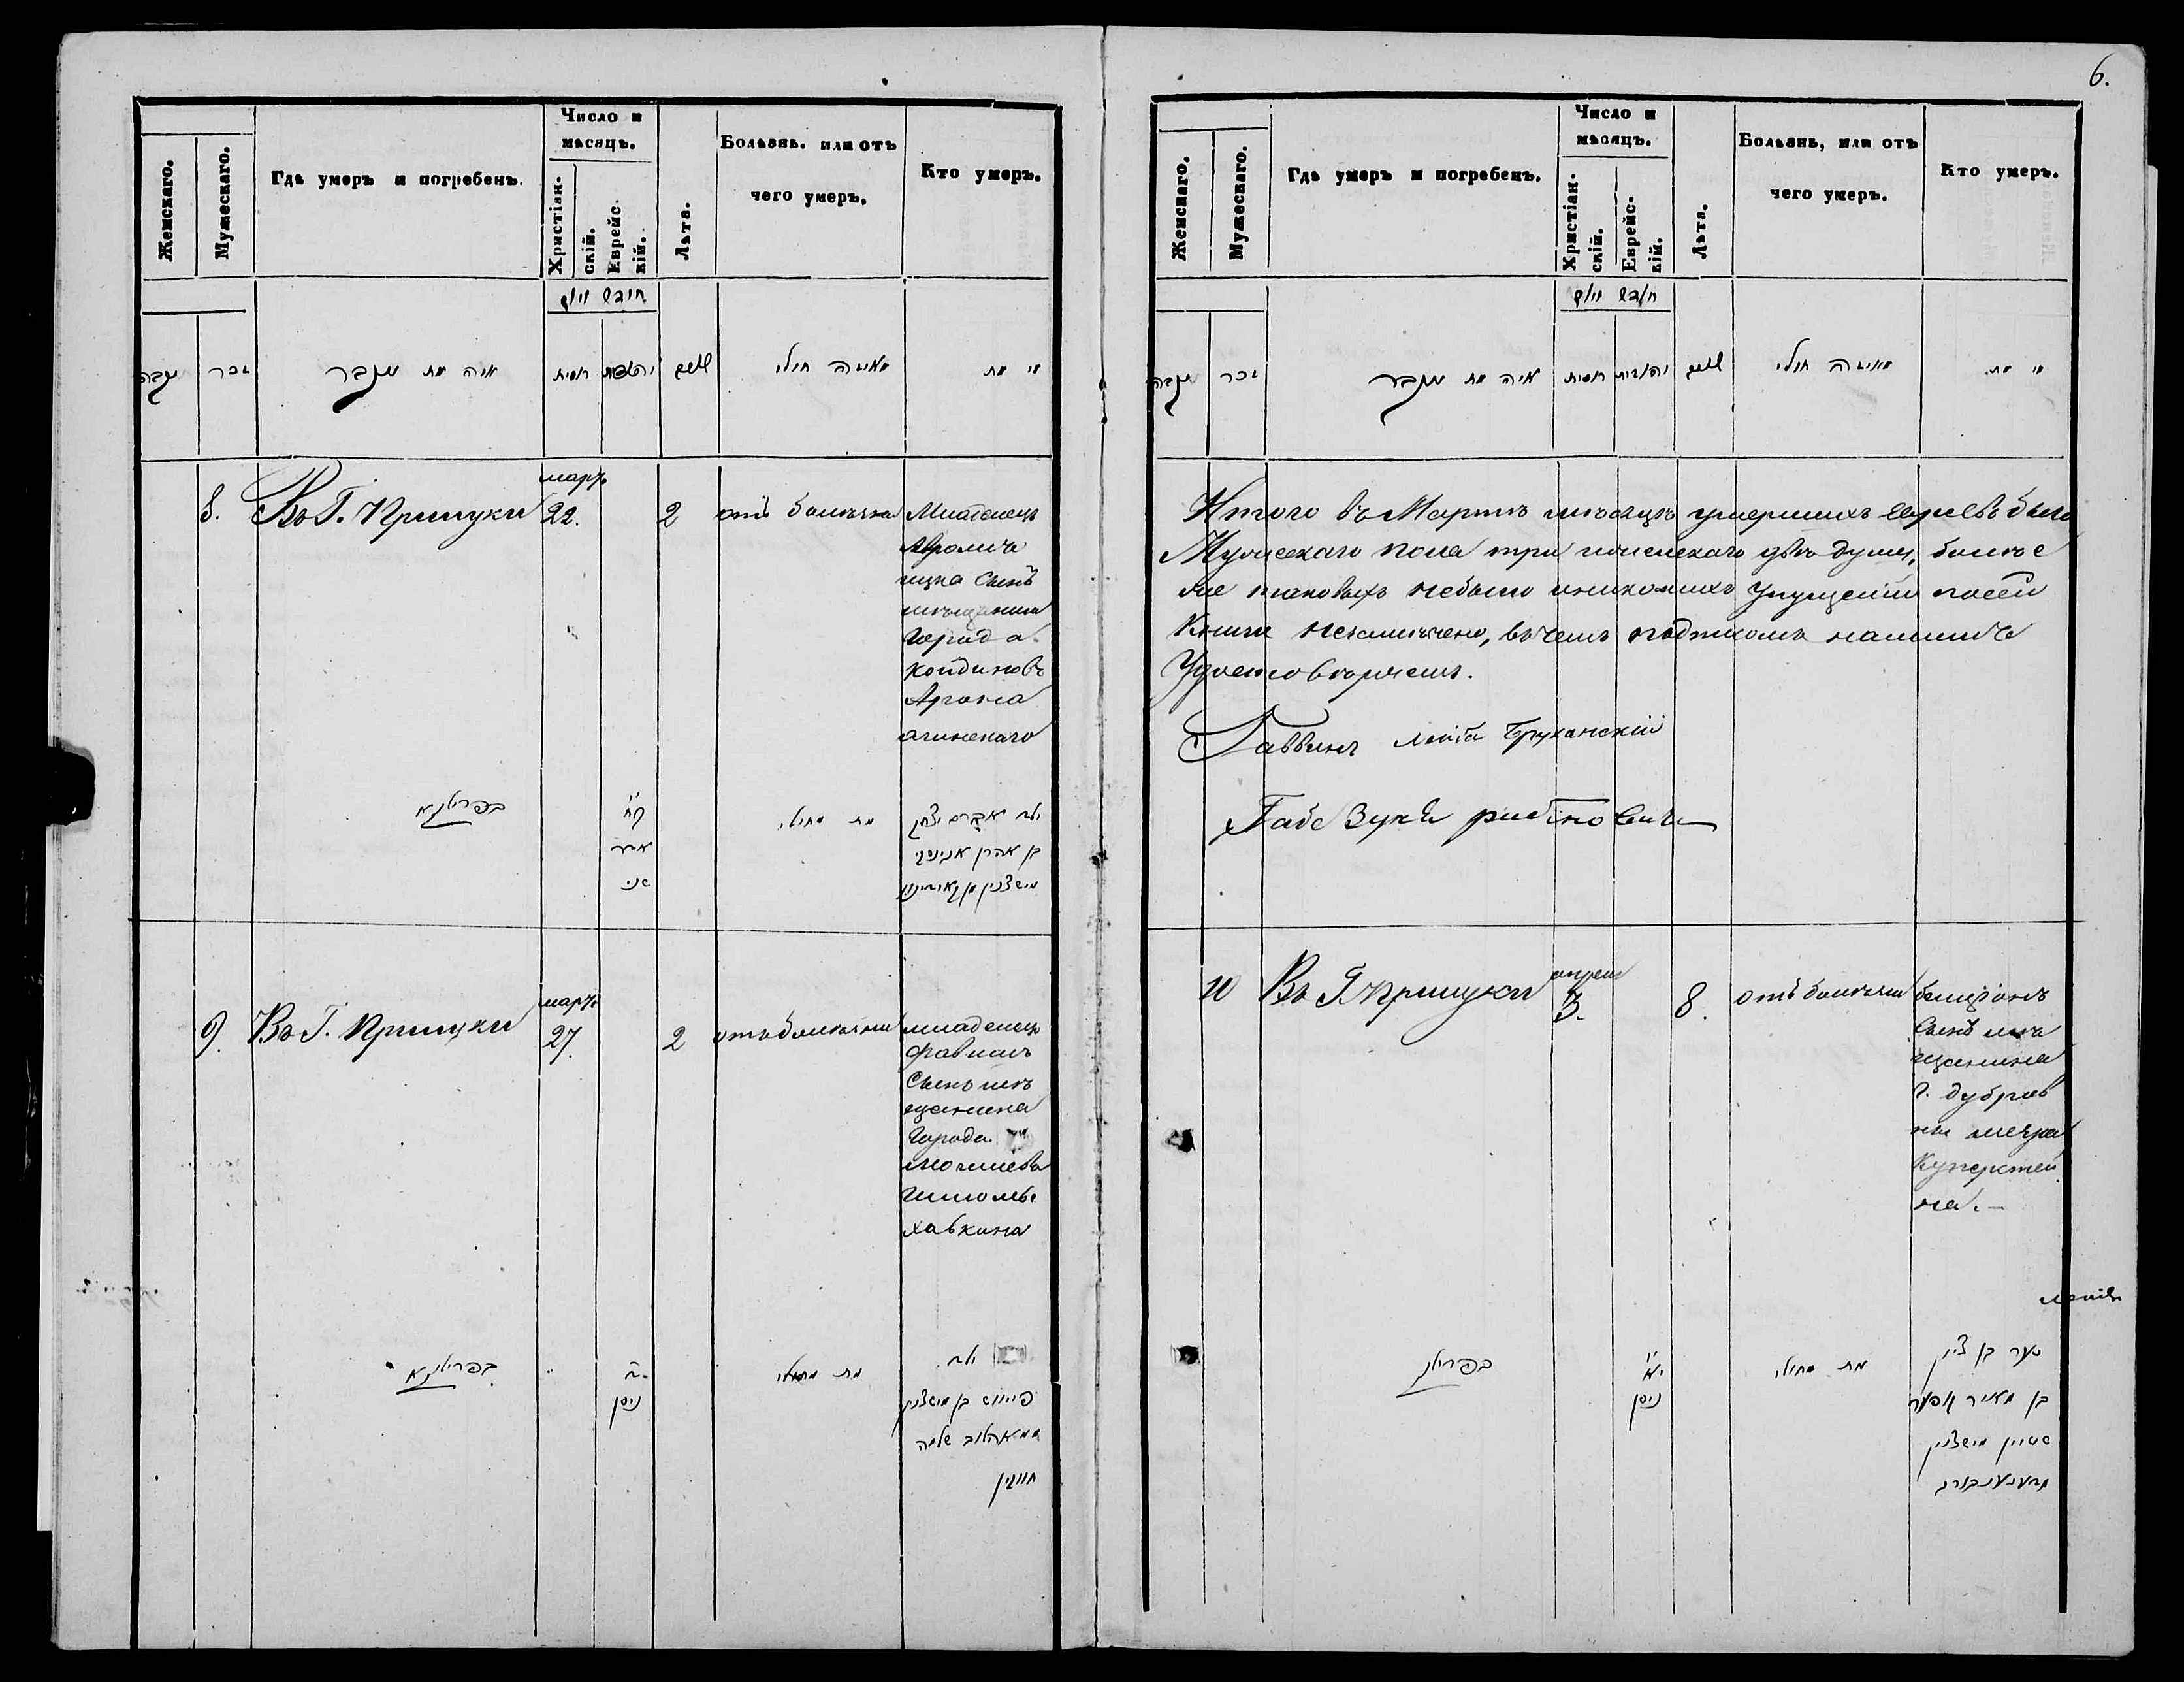 6.
Женскаго.
Мужескаго.
Гдѣ умеръ и погребенъ.
Число и мѣсяцъ.
Христіанскій.
Еврейскій.
Лѣта.
Болѣзнь, или отъ чего умеръ.
Кто умеръ.
חודש ויום
נקבה
זכר
איה מת ונקבר
רוסית
יהודית
מאיזה חולי
מי מת
8.
Въ Г. Прилуки
мартъ
22.
2
отъ болезни
Младенецъ
Авромъ и
цка сынъ
мѣщанина
города
Койдиновъ
Арона
Агинскаго
בפרילוקא
כ״ח
אדר
שני
מת מחולי
ילד אברהם יצחק
בן אהרן אגינסקי
9.
Въ Г. Прилуки
мартъ
27.
2
отъ болезни
младенецъ
Фавишъ
сынъ мѣ
щанина
города
Могилева
Шломы
Хавкина
בפרילוקא
ניסן
מת מחולי
ילד
פייוויש בן
שלמה
חווקין
Женскаго.
Мужескаго.
Гдѣ умеръ и погребенъ.
Число и мѣсяцъ.
Христіанскій.
Еврейскій.
Лѣта.
Болѣзнь, или отъ чего умеръ.
Кто умеръ.
חודש ויום
נקבה
זכר
איה מת ונקבר
רוסית
יהודית
מאיזה חולי
מי מת
Итого въ Мартѣ мѣсяцѣ умершихъ евреевъ было
Мужескаго пола три женскаго двѣ душы, болѣе
же таковыхъ небыло и никакихъ упущеній по сей
Книги незамѣчено, въ чемъ подписомъ нашимъ
Удостовѣряемъ.
Раввинъ Лейба Бруханскій
Габе Зункъ рабиновичъ
10
Въ Г. Прилуки
апреля
3.
8.
отъ болезни
Бенціонъ
сынъ мѣ
щанина
г. Дубров
ны Меера
Куперштей
на.
בפרילוק
י״א
ניסן
מת מחולי
נער בן ציון
בן מאיר קופער
שטיין